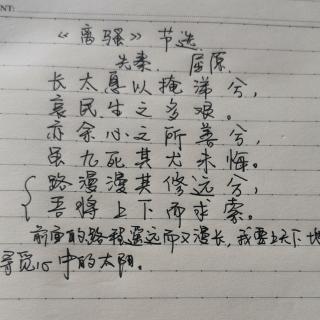 NT:
《离骚》节选
先秦 屈原
长太息以掩涕兮,
哀民生之多艰。
亦余心之所善兮,
虽九死其尤未悔。
路漫漫其修远兮,
吾将上下而求索。
前面的路程遥远而又漫长,我要上天下地
寻觅心中的太阳。